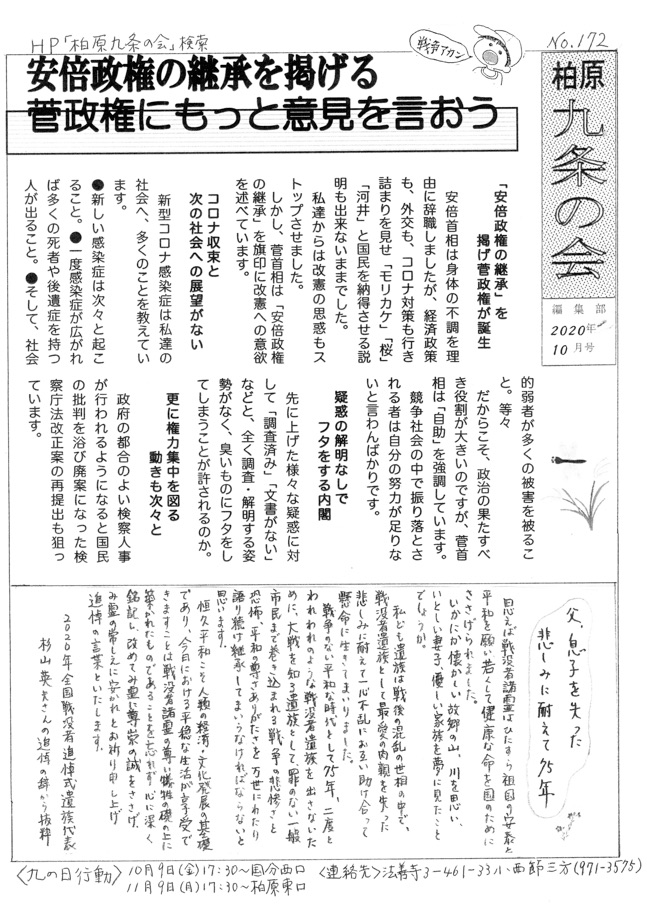 HP「柏原九条の会」検索
戦争アカン
No.172
安倍政権の継承を掲げる
菅政権にもっと意見を言おう
柏原
九条の会
編集部
2020年
10月号
「安倍政権の継承」を
掲げ菅政権が誕生
安倍首相は身体の不調を理
由に辞職しましたが、経済政策
も、外交も、コロナ対策も行き
詰まりを見せ「モリカケ」「桜」
「河井」と国民を納得させる説
明も出来ないままでした。
私達からは改憲の思惑もス
トップさせました。
しかし、菅首相は「安倍政権
の継承」を旗印に改憲への意欲
を述べています。
コロナ収束と
次の社会への展望がない
新型コロナ感染症は私達の
社会へ、多くのことを教えてい
ます。
●新しい感染症は次々と起こ
ること。●一度感染症が広がれ
ば多くの死者や後遺症を持つ
人が出ること。●そして、社会
的弱者が多くの被害を被るこ
と。等々
だからこそ、政治の果たすべ
き役割が大きいのですが、菅首
相は「自助」を強調しています。
競争社会の中で振り落とさ
れる者は自分の努力が足りな
いと言わんばかりです。
疑惑の解明なしで
フタをする内閣
先に上げた様々な疑惑に対
して「調査済み」「文書がない」
などと、全く調査・解明する姿
勢がなく、臭いものにフタをし
てしまうことが許されるのか。
更に権力集中を図る
動きも次々と
政府の都合のよい検察人事
が行われるようになると国民
の批判を浴び廃案になった検
察庁法改正案の再提出も狙っ
ています。
父、息子を失った
悲しみに耐えて75年
思えば戦没者諸霊はひたすら祖国の安泰と
平和を願い若くして健康な命を国のために
ささげられました。
いかだか懐かしい故郷の山、川を思い、
いとしい妻子、優しい家族を夢に見たこと
でしょうか。
私ども遺族は戦後の混乱の世相の中で、
戦没者遺族として最愛の肉親を失った
悲しみに耐えて一心不乱にお互い助け合って
懸命に生きてまいりました。
戦争のない平和な時代として75年、二度と
われわれのような戦没者遺族を出さないた
めに、大戦を知る遺族として、罪のない一般
市民まで巻き込まれる戦争の悲惨さと
恐怖、平和の尊さありがたさを万世にわたり
語り続け継承してまいらなければならないと
思います。
恒久平和こそ人類の経済・文化発展の基礎
であり、今日における平穏な生活が享受で
きますことは戦没者諸霊の尊い犠牲の礎の上に
築かれたものであることを忘れず心に深く
銘記し、改めてみ霊に尊崇の誠をささげ、
み霊の常しえに安かれとお祈り申し上げ
追悼の言葉といたします。
2020年全国戦没者追悼式遺族代表
杉山英夫さんの追悼の辞から抜粋
〈九の日行動〉10月9日(金)17:30〜国分西口
11月9日(月)17:30〜柏原東口
〈連絡先〉法善寺3-461-33小西節三方(971-3575)